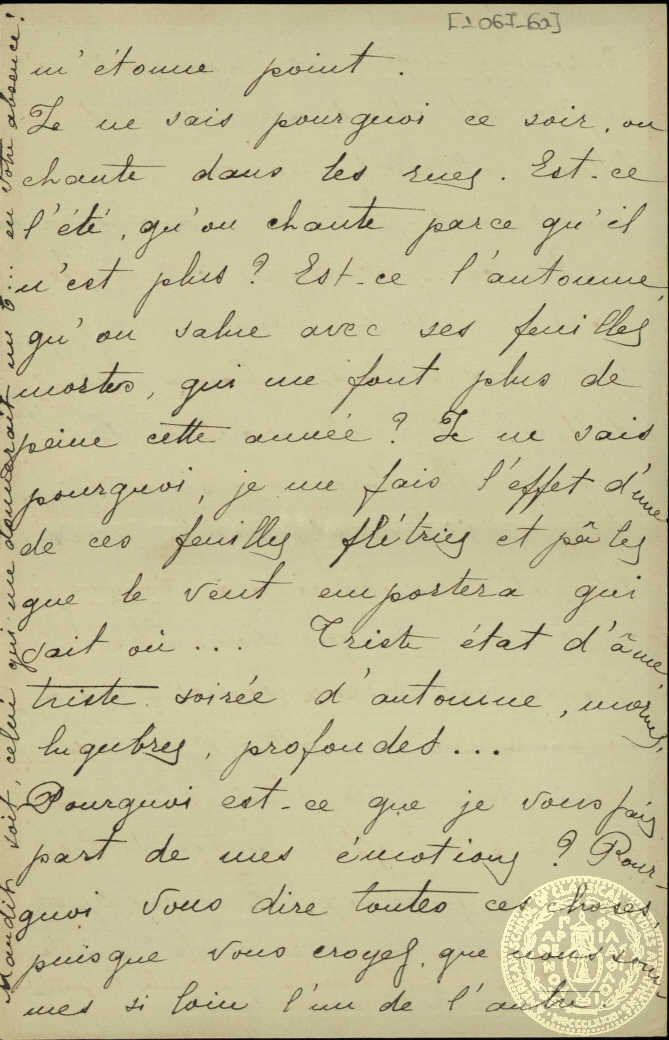 [1906-62]
m'étonne point.
Je ne sais pourquoi ce soir, on
chante dans les rues. Est-ce
l'été, qu'on chante parce qu'il
n'est plus? Est-ce l'automne,
qu'on salue avec ses feuilles
mortes, qui me font plus de
peine cette année? Je ne sais
pourquoi, je me fais l'effet d'une
de ces feuilles flétries et pâles
que le vent emportera qui
sait où... Triste état d'âme,
triste soirée d'automne, mornes,
lugubres, profondes...
Pourquoi est-ce que je vous fais
part de mes émotions? Pour-
quoi vous dire toutes ces choses,
puisque vous croyez, que nous som-
mes si loin l'un de l'autre.
Maudit soit, celui qui me donnerait un 6... en votre absence!